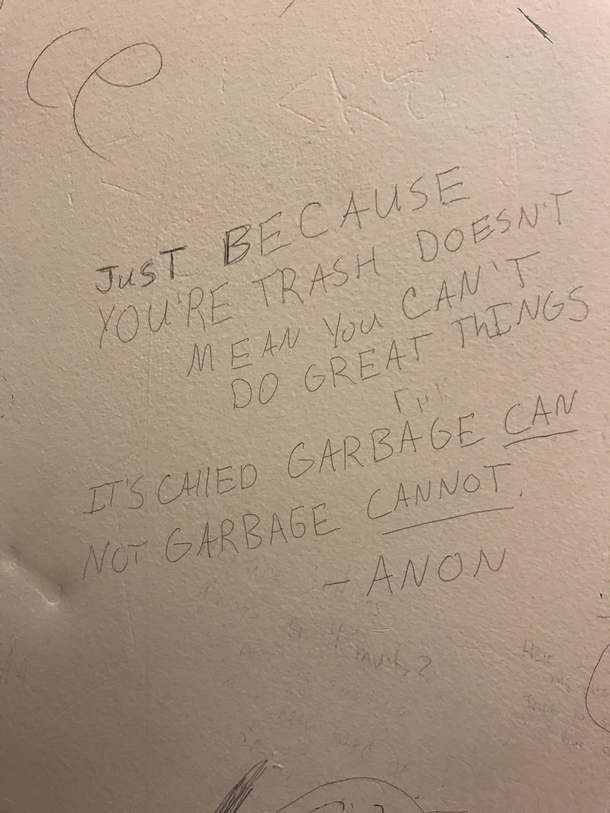 JUST BECAUSE
YOU'RE TRASH DOESN'T
MEAN YOU CAN'T
DO GREAT THINGS
IT'S CALLED GARBAGE CAN
NOT GARBAGE CANNOT.
- ANON